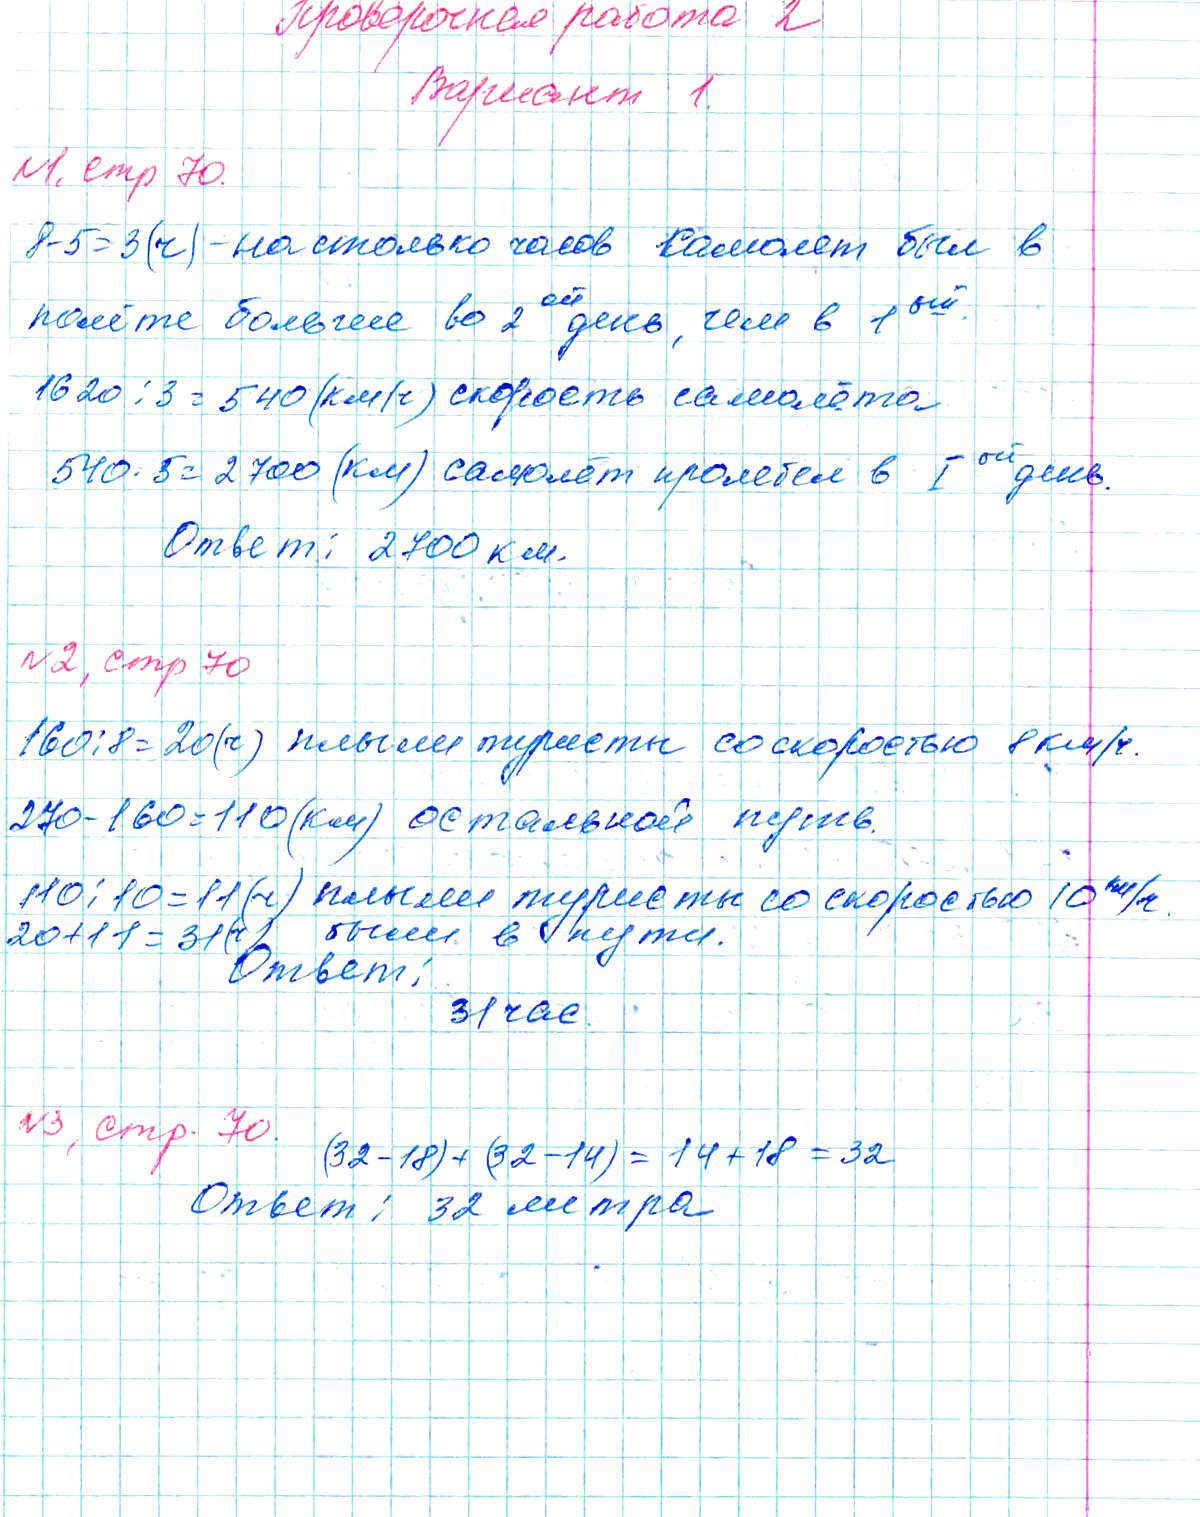 Проверочная работа 2
Вариант 1.
№1, стр 70.
8-5=3(ч) - на столько часов самолет был в
полёте больше во 2 ой день, чем в 1 ый.
1620:3=540(км/ч) скорость самолёта
540·5=2700(км) самолёт пролетел в I ой день.
Ответ: 2700 км.
№2, стр 70
160:8=20(ч) плыли туристы со скоростью 8км/ч.
270-160=110(км) остальной путь.
110:10=11(ч) плыли туристы со скоростью 10 км/ч.
20+11=31(ч) были в пути.
Ответ:
31 час.
№3, стр. 70.
(32-18)+(32-14)=14+18=32
Ответ: 32 литра